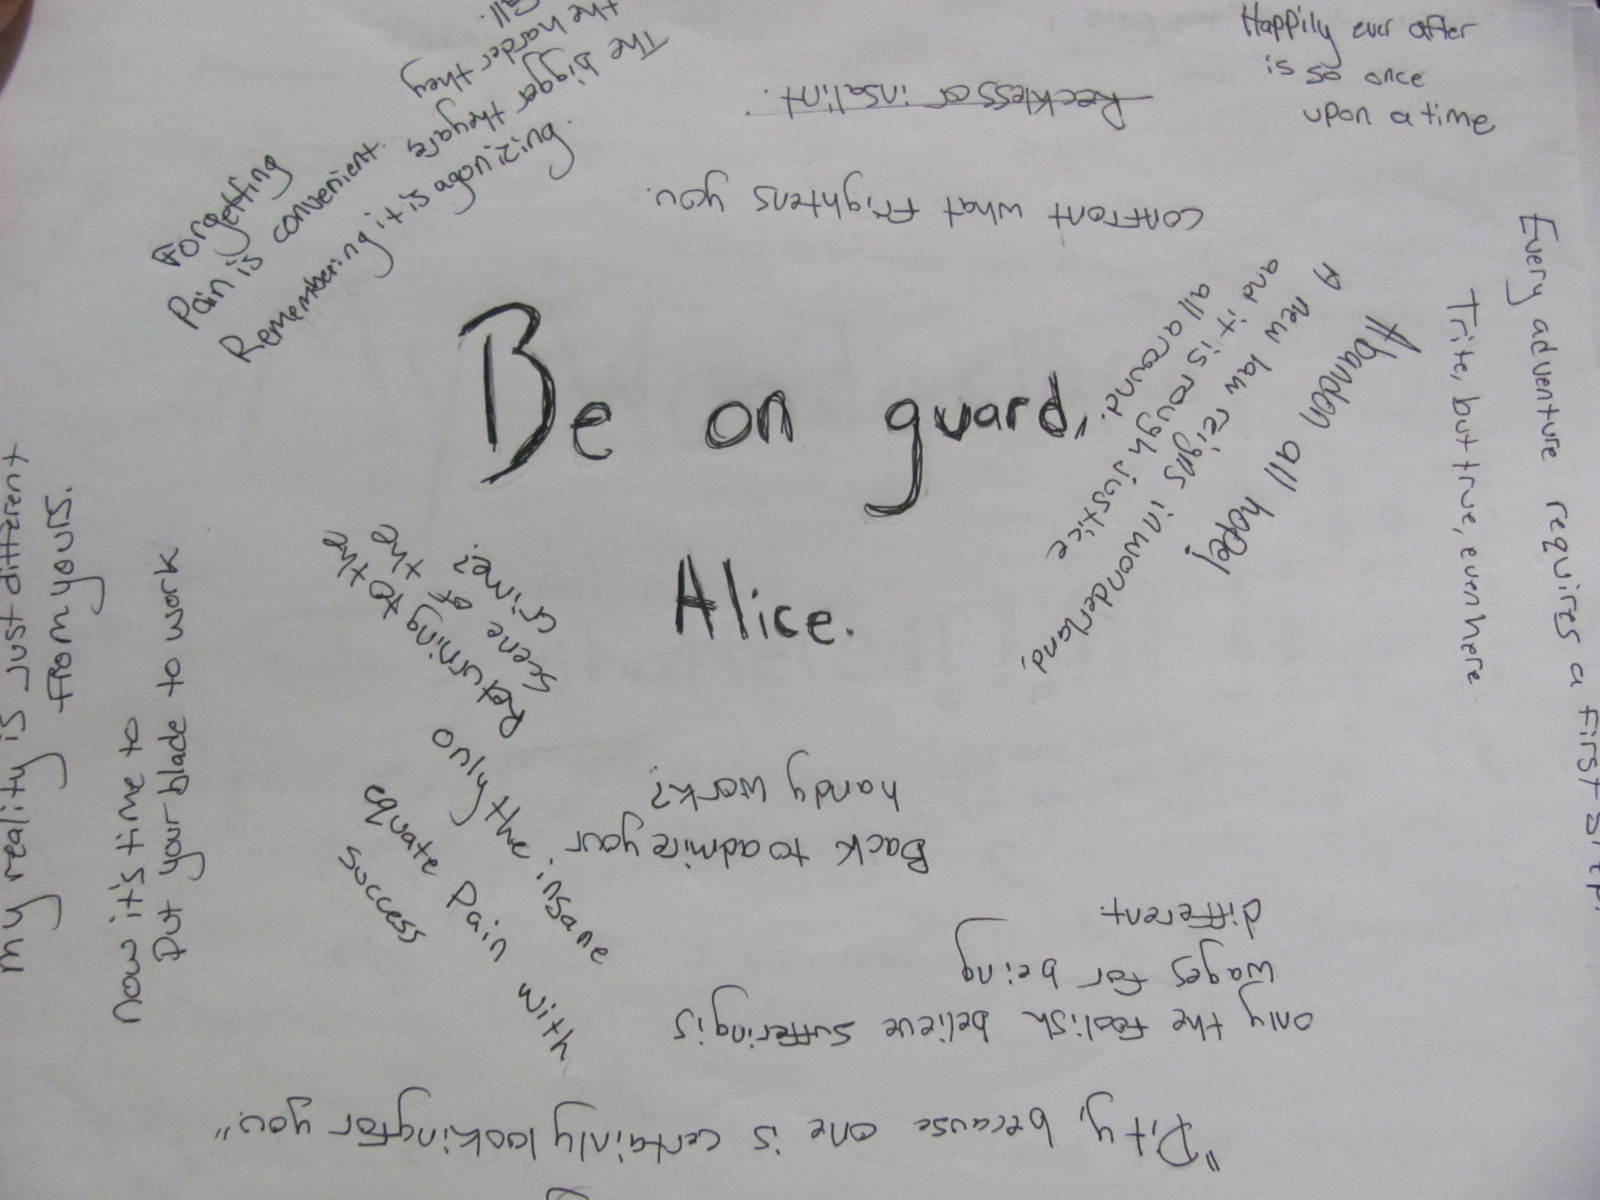 Happily ever after
is so once
upon a time
The bigger they are
the harder they
Forgetting
Pain is convenient.
Remembering it is agonizing.
Reckless or insalint.
confront what frightens you.
Every adventure requires a first step.
Trite, but true, even here
Abandon all hope!
A new law reigns in wonderland,
and it is rough justice
all around.
Be on guard,
Alice.
my reality is just different
from yours.
now it's time to
Put your blade to work
Returning to the
scene of the
crime?
Back to admire your
handy work?
only the insane
equate Pain with
success
only the foolish believe suffering is
wages for being
different.
"Pity, because one is certainly looking for you."